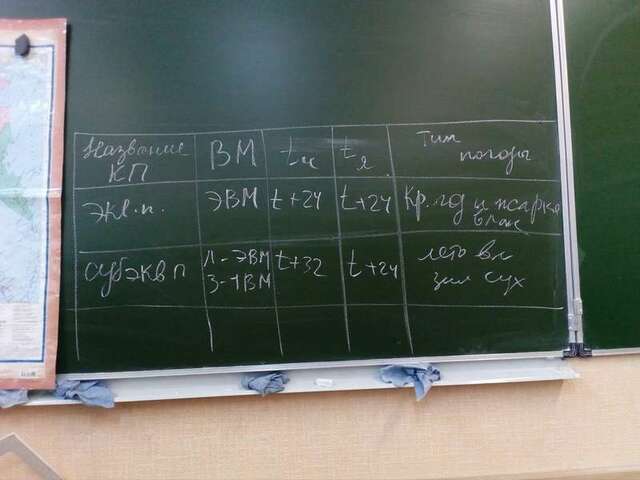 Название КП
ВМ
tи
tя
Тип погоды
экв.п.
ЭВМ
t+24
t+24
Кр.год и жарко влаж
субэкв п
Л-ЭВМ
З-ТВМ
t+32
t+24
лето вл
зим сух